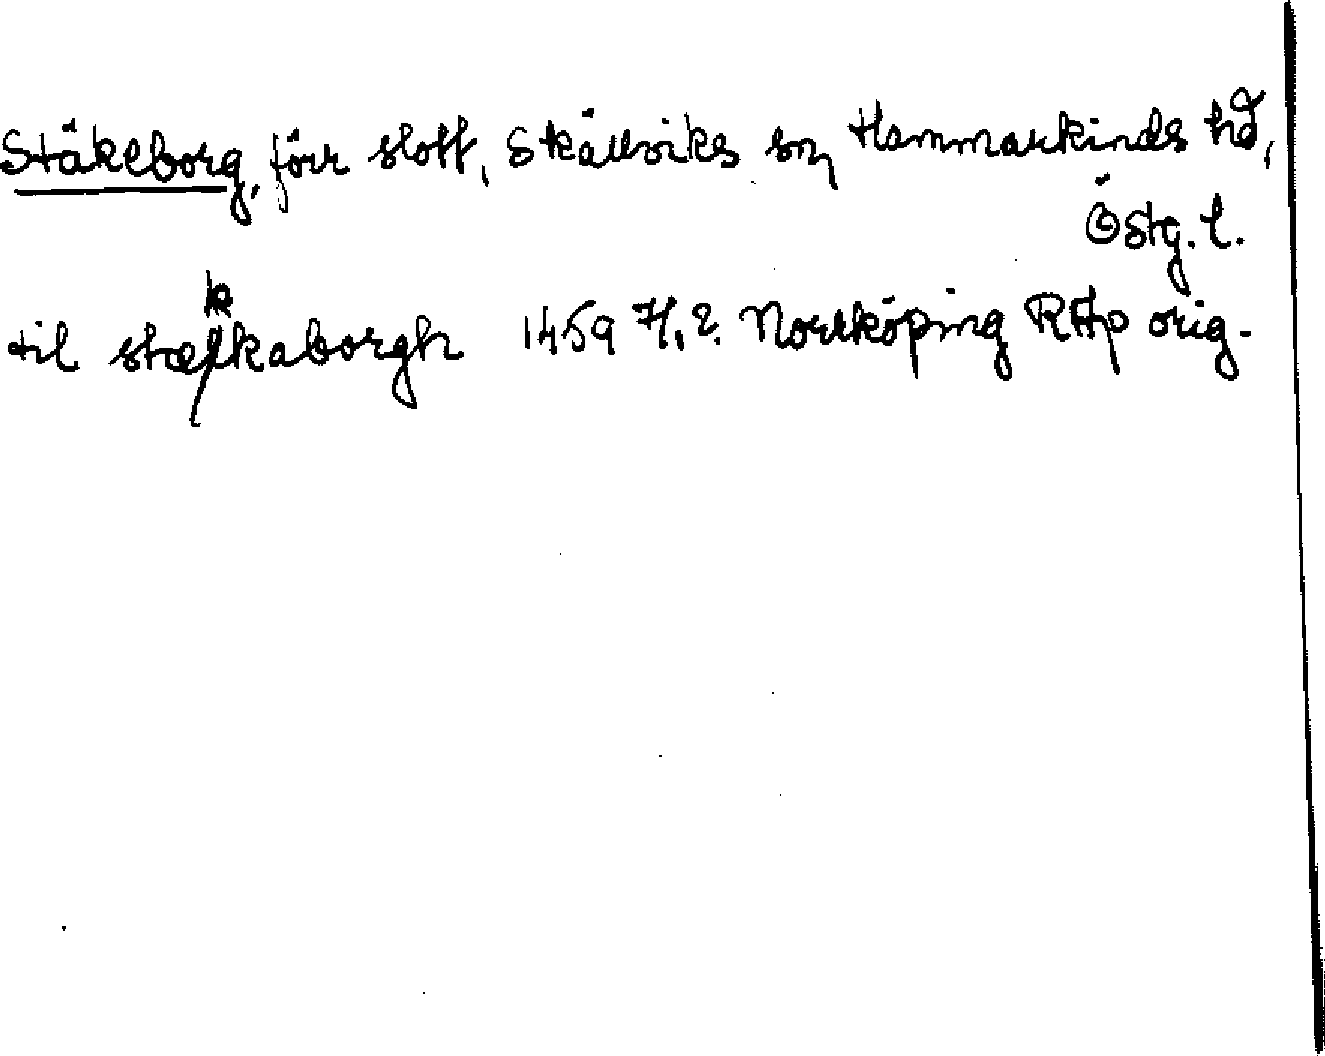 Stäkeborg, förr slott, Skällviks sn, Hammarkinds hd,
Östg. l.
til stækkaborgh 1459 7/.2. Norrköping RAp orig.